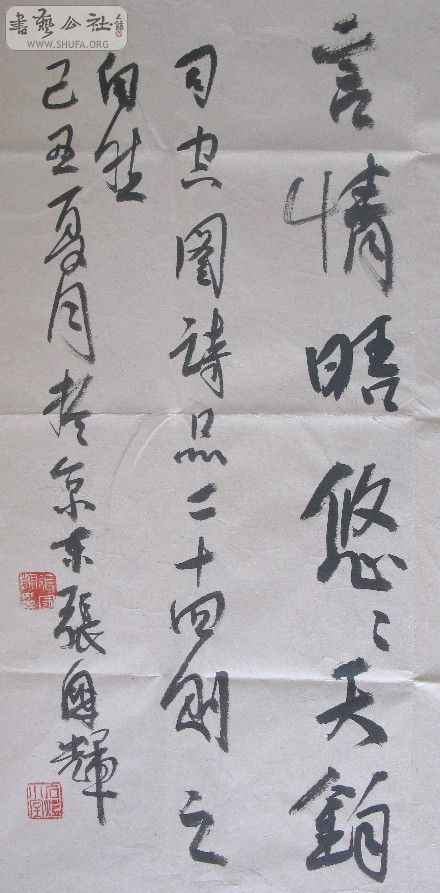 言情晤悠〻天鈞
司空圖詩品二十四則之
自然
己丑夏月於京东張國輝
書藝公社
WWW.SHUFA.ORG